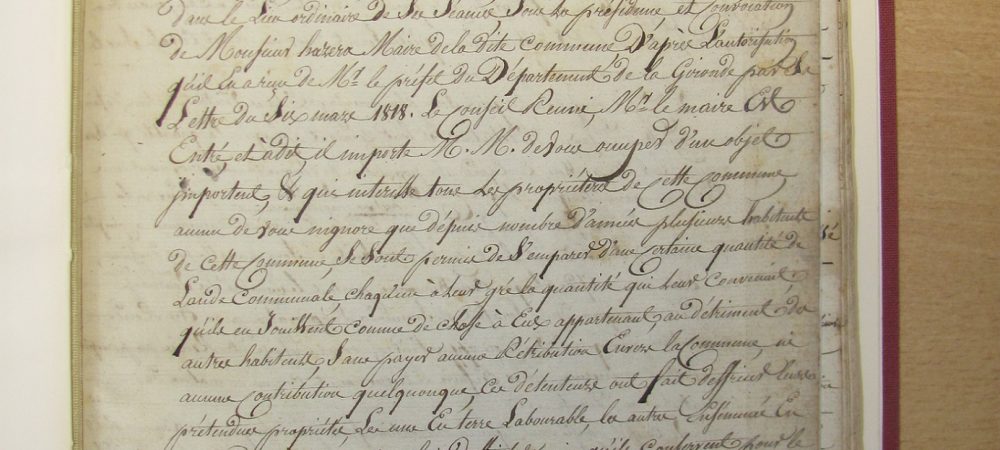 dans le Lieu ordinaire de Ses Séances, Sous la présidence et Convocation
de Monsieur hazera Maire de la dite commune D'après L'autorisation
qu'il En a reçu de Mr. le préfet du Département de la Gironde par Sa
Lettre du Six mars 1818. Le Conseil Reuni, Mr. le maire Est
Entré, et à dit, il importe M. M. de vous occuper d'un objet
important, & qui interesse tous les propriétaires de cette commune
aucun de vous n'ignore que dépuis nombre d'années plusieurs habitants
de cette Commune, Se Sont permis de S'emparer d'une Certaine quantité de
Lande Communale, chaqu'un à leur gré la quantité qui Leur Convenait
qu'ils en Jouissent comme de chose à Eux appartenant, au détriment des
autres habitents, Sans payer aucune Rétribution Envers la Commune, ni
aucune Contribution quelquonque, Ces détenteurs ont fait deffricher Leurs
prétendues propriétés, Les uns En terre Labourable les autres Ensémencé En
qu'ils Conservent pour le